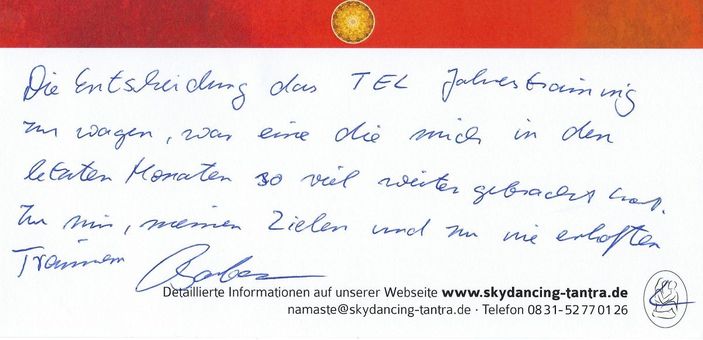 Die Entscheidung das TEL Jahrestraining
zu wagen, war eine die mich in den
letzten Monaten so viel weiter gebracht hat.
Zu mir, meinen Zielen und zu nie erhofften
Träumen Barbara
Detaillierte Informationen auf unserer Webseite www.skydancing-tantra.de
namaste@skydancing-tantra.de · Telefon 0831-52770126